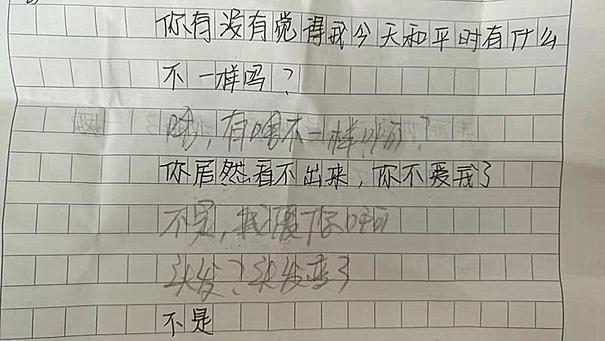 你有没有觉得我今天和平时有什么
不一样吗？
啥，有啥不一样啊？
你居然看不出来，你不爱我了
不是，我爱你啊
头发？头发变了
不是